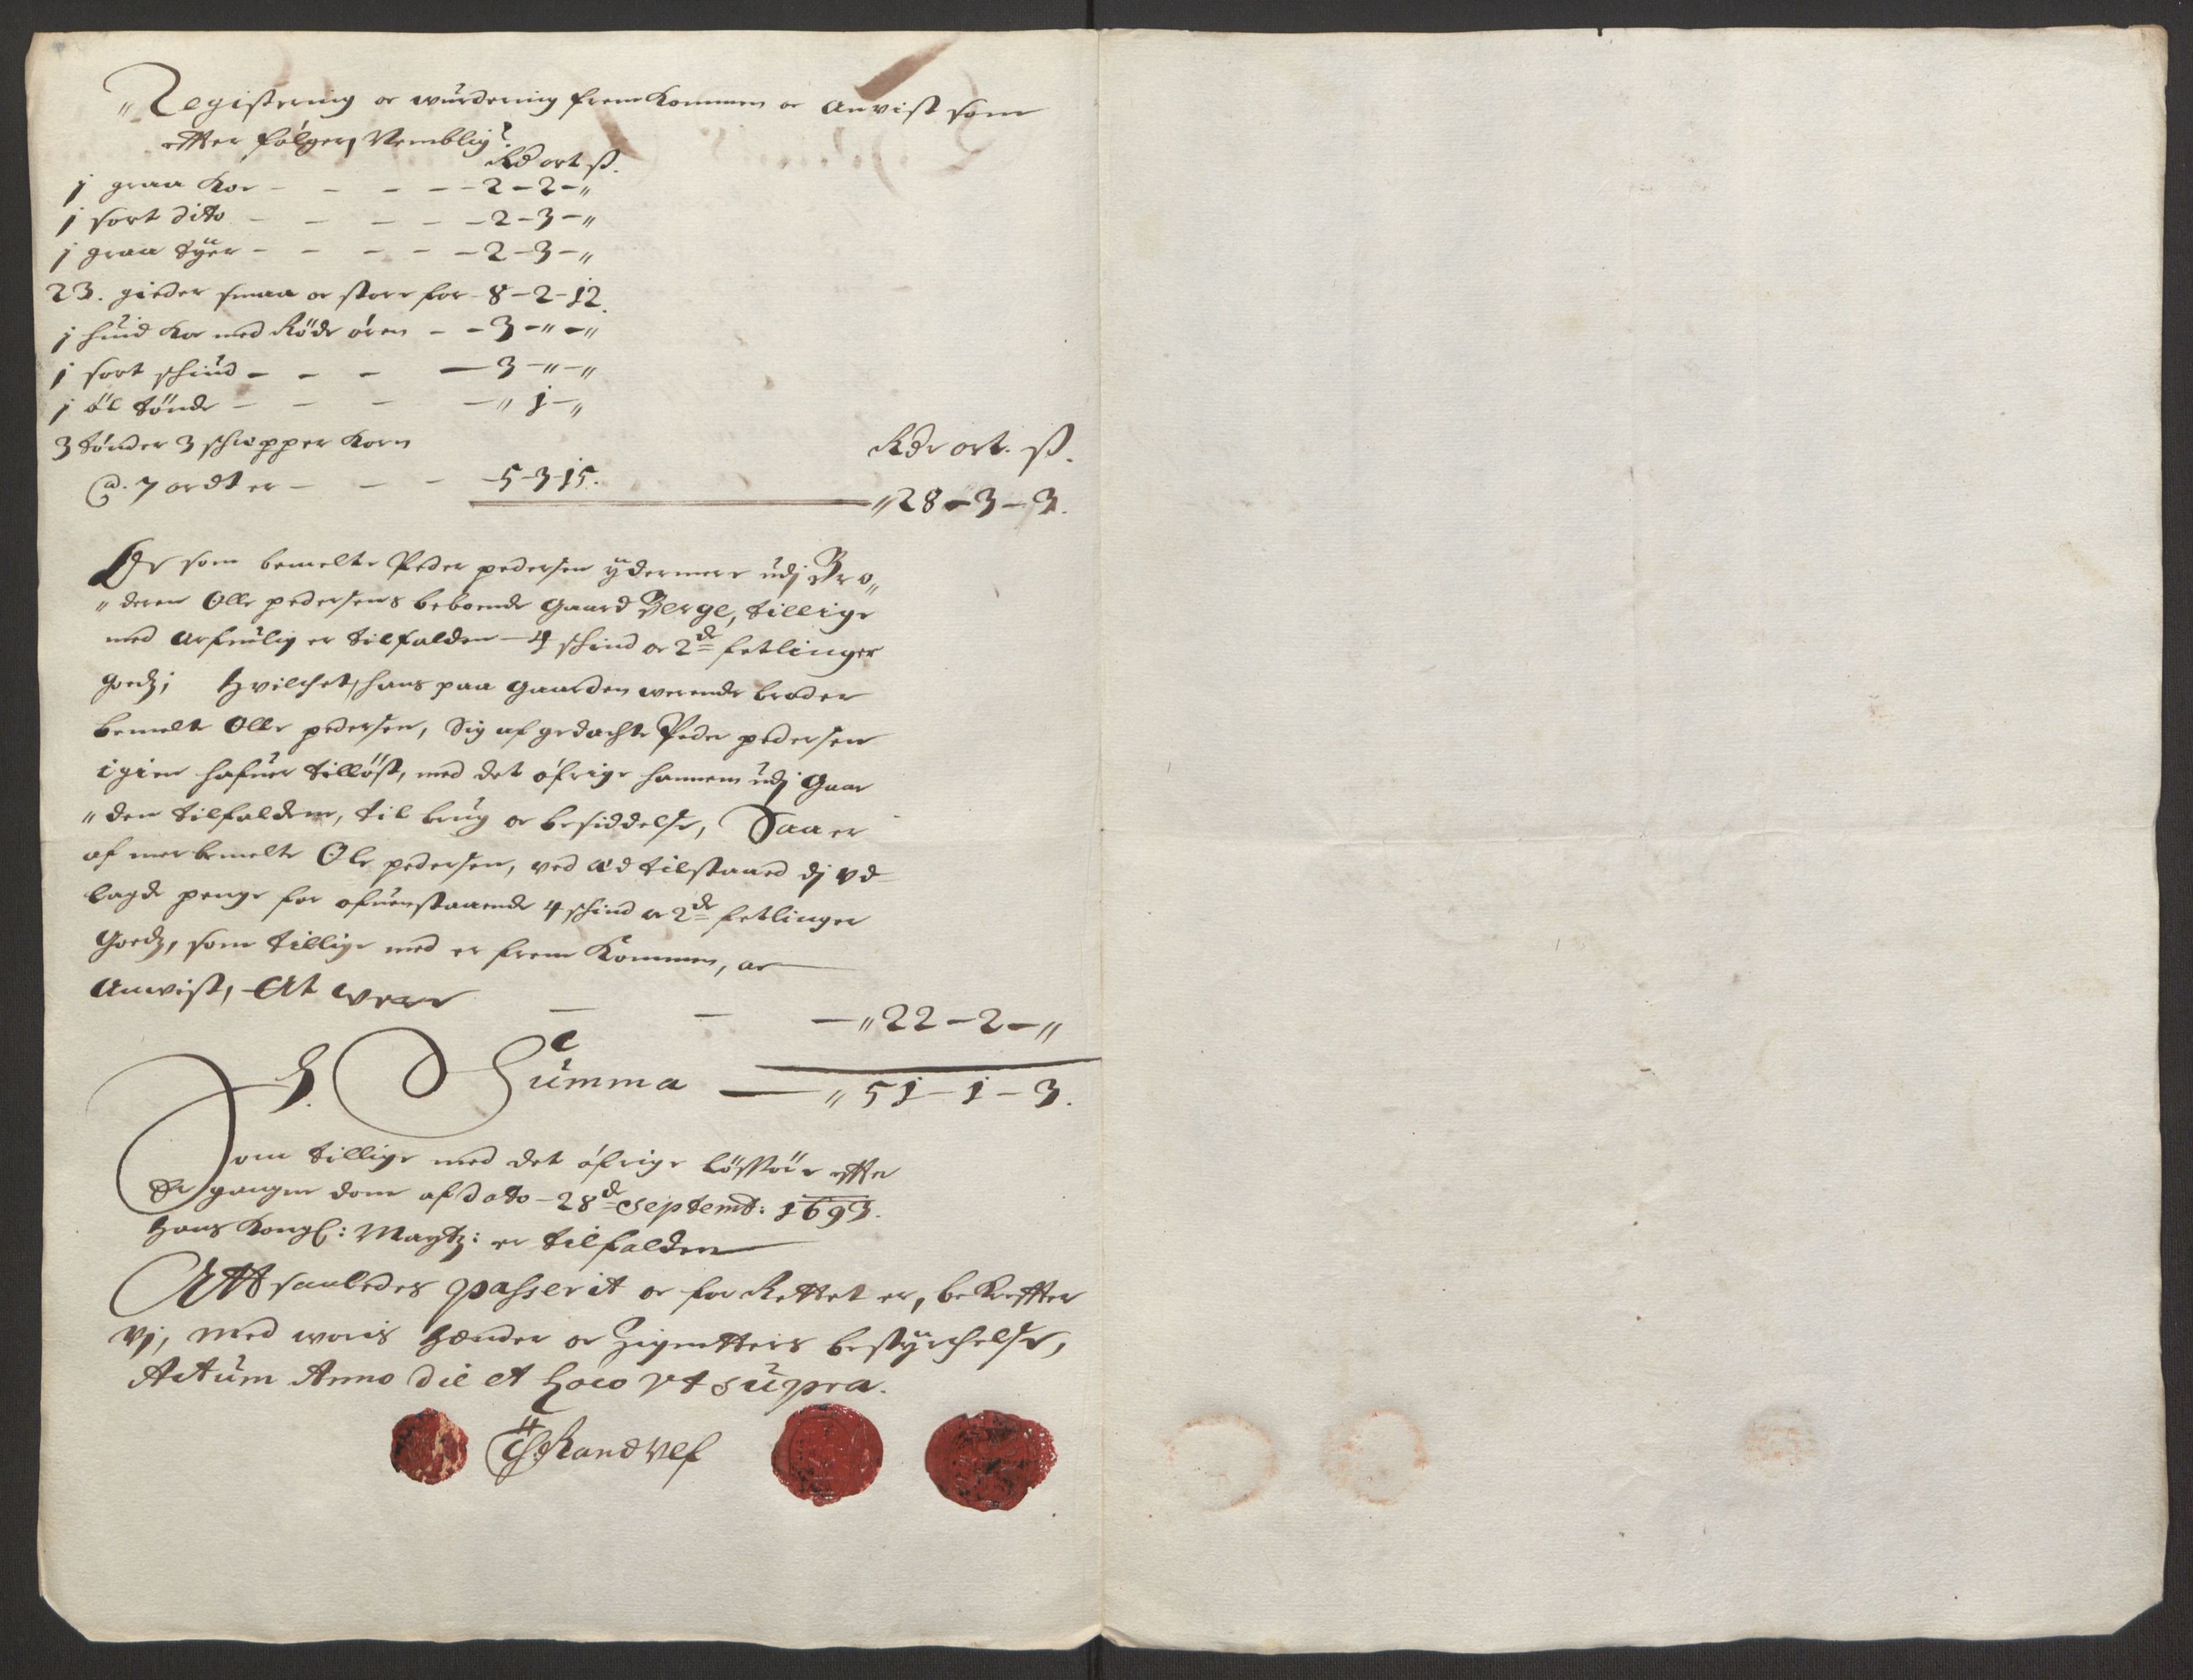 "Registering oc wurdering fremkommen oc anvist som
effter følger, Nemblig
Rd ort ß.
1 graa Koe - - - - - 2 - 2 - "
1 sort dito - - - - - 2 - 3 - "
1 graa tÿr - - - - - 2 - 3 - "
23. gieder smaa oc store for - 8 - 2 - 12.
1 huid Koe med Røde ören - - 3 - " - "
1 sort schiud - - - - 3 - " - "
1 öl tönde - - - - " 1 - "
3 tönder 3 schiepper Korn
@. 7 ordter - - - 5 - 3 - 15.
Rdr ort. ß.
"28 - 3 - 3.
Oc som bemelte Peder pedersen ÿdermere udj Bro"
"deren Olle pedersens beboende Gaard Berge, tillige
med arfuelig er tilfalden - 4 schind oc 2de fetlinger
goedz; Hvilchet, hans paa Gaarden werende broder
bemelte Olle pedersen, Sig af gedachte Peder pedersen
igien hafuer tilløst, med det øfrige hannem udj Gaar
"den tilfalden, til brug oc besiddelse, Saa er
af merbemelte Ole pedersen, ved æd tilstaaed dj vd
lagde penge for ofuenstaaende 4 schind oc 2de fetlinger
Goedz, som tillige med er frem Kommen, oc
Anvist, At were - - - "22 - 2 - "
Summa - "51 - 1 - 3.
Som tillige med det öfrige lössöre effter
Er gangen dom af dato - 28de Septemb: 1693.
Hans Kongl: Maytz: er tilfalden
Att saaledes passerit oc for Rettet er, bekreffter
Vj, med woris Hænder oc Zignetters bestÿrchelse,
Actum Anno die et Loco vt supra.
Randvlf